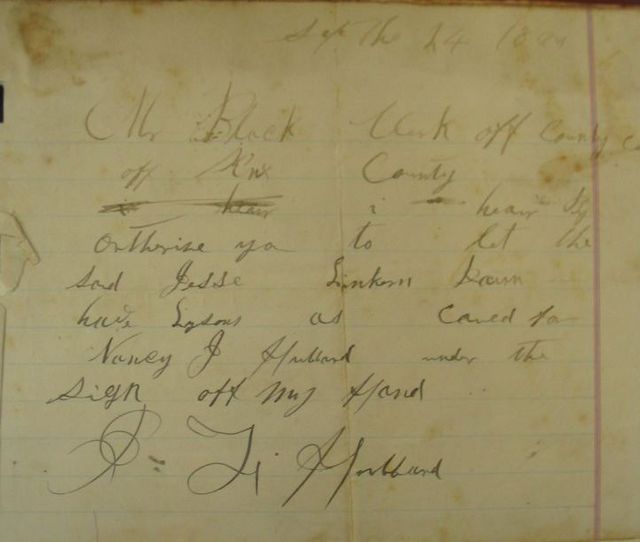 Sept the 24 18
Mr Black Clerk off County
off Knx County
i hear
i hear By
ortherise you to let the
sad Jesse Linkern
have Lysons as Caued for
Nancy J Hubbard under the
sign off my Hand
R L Hubbard